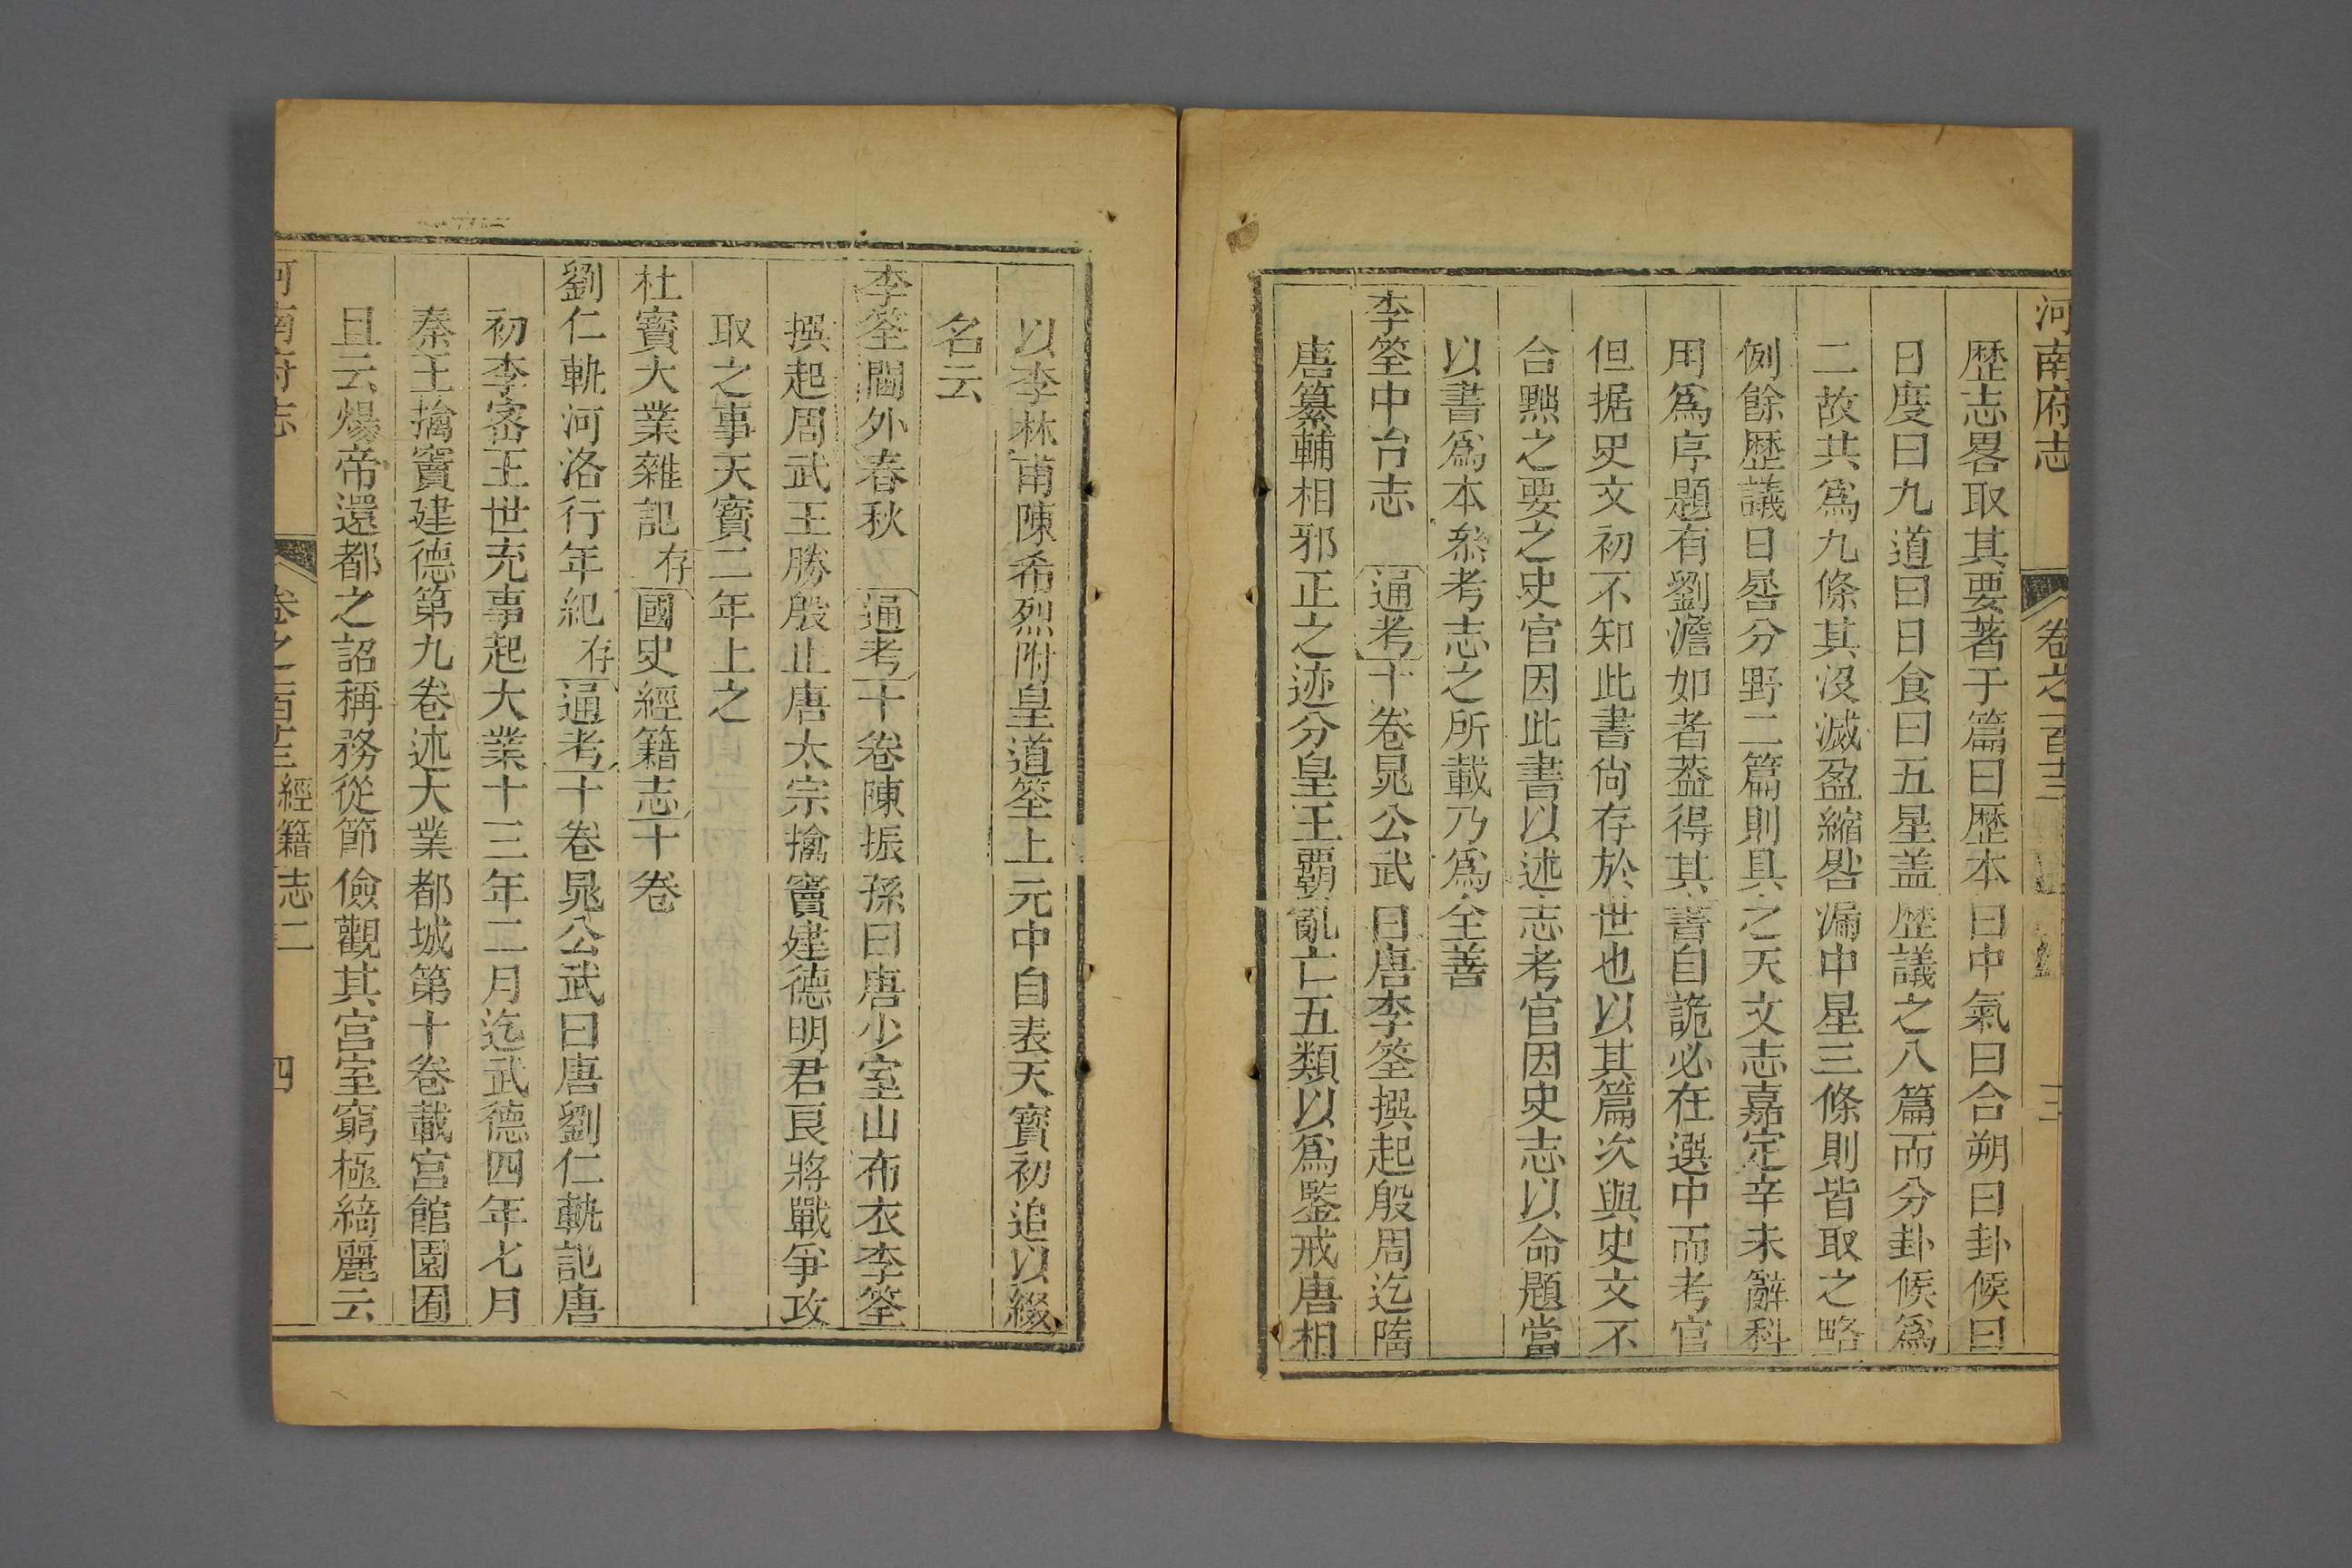 河南府志 卷之一百十三 三
歷志畧取其要著于篇曰歷本曰中氣曰合朔曰卦候曰
日度曰九道曰日食曰五星盖歷議之八篇而分卦候爲
二故共爲九條其沒滅盈縮晷漏中星三條則皆取之略
例餘歷議日晷分野二篇則具之天文志嘉定辛未辭科
用爲序題有劉澹如者葢得其書自詭必在選中而考官
但据史文初不知此書尙存於世也以其篇次與史文不
合黙之要之史官因此書以述志考官因史志以命題當
以書爲本叅考志之所載乃爲全善
李筌中台志 通考十卷晁公武曰唐李筌撰起殷周迄隋
唐纂輔相邪正之迹分皇王覇亂亡五類以爲鑒戒唐相
以李林甫陳希烈附皇道筌上元中自表天寶初追以綴
名云
李筌閫外春秋 通考十卷陳振孫曰唐少室山布衣李筌
撰起周武王勝殷止唐太宗擒竇建德明君良將戰爭攻
取之事天寳二年上之
杜寳大業雜記 存 國史經籍志十卷
劉仁軌河洛行年紀 存 通考十卷晁公武曰唐劉仁軌記唐
初李密王世充事起大業十三年二月迄武德四年七月
秦王擒竇建德第九卷述大業都城第十卷載宫館園囿
且云煬帝還都之詔稱務從節儉觀其宫室窮極綺麗云
河南府志 卷之一百十三 經籍志二 四